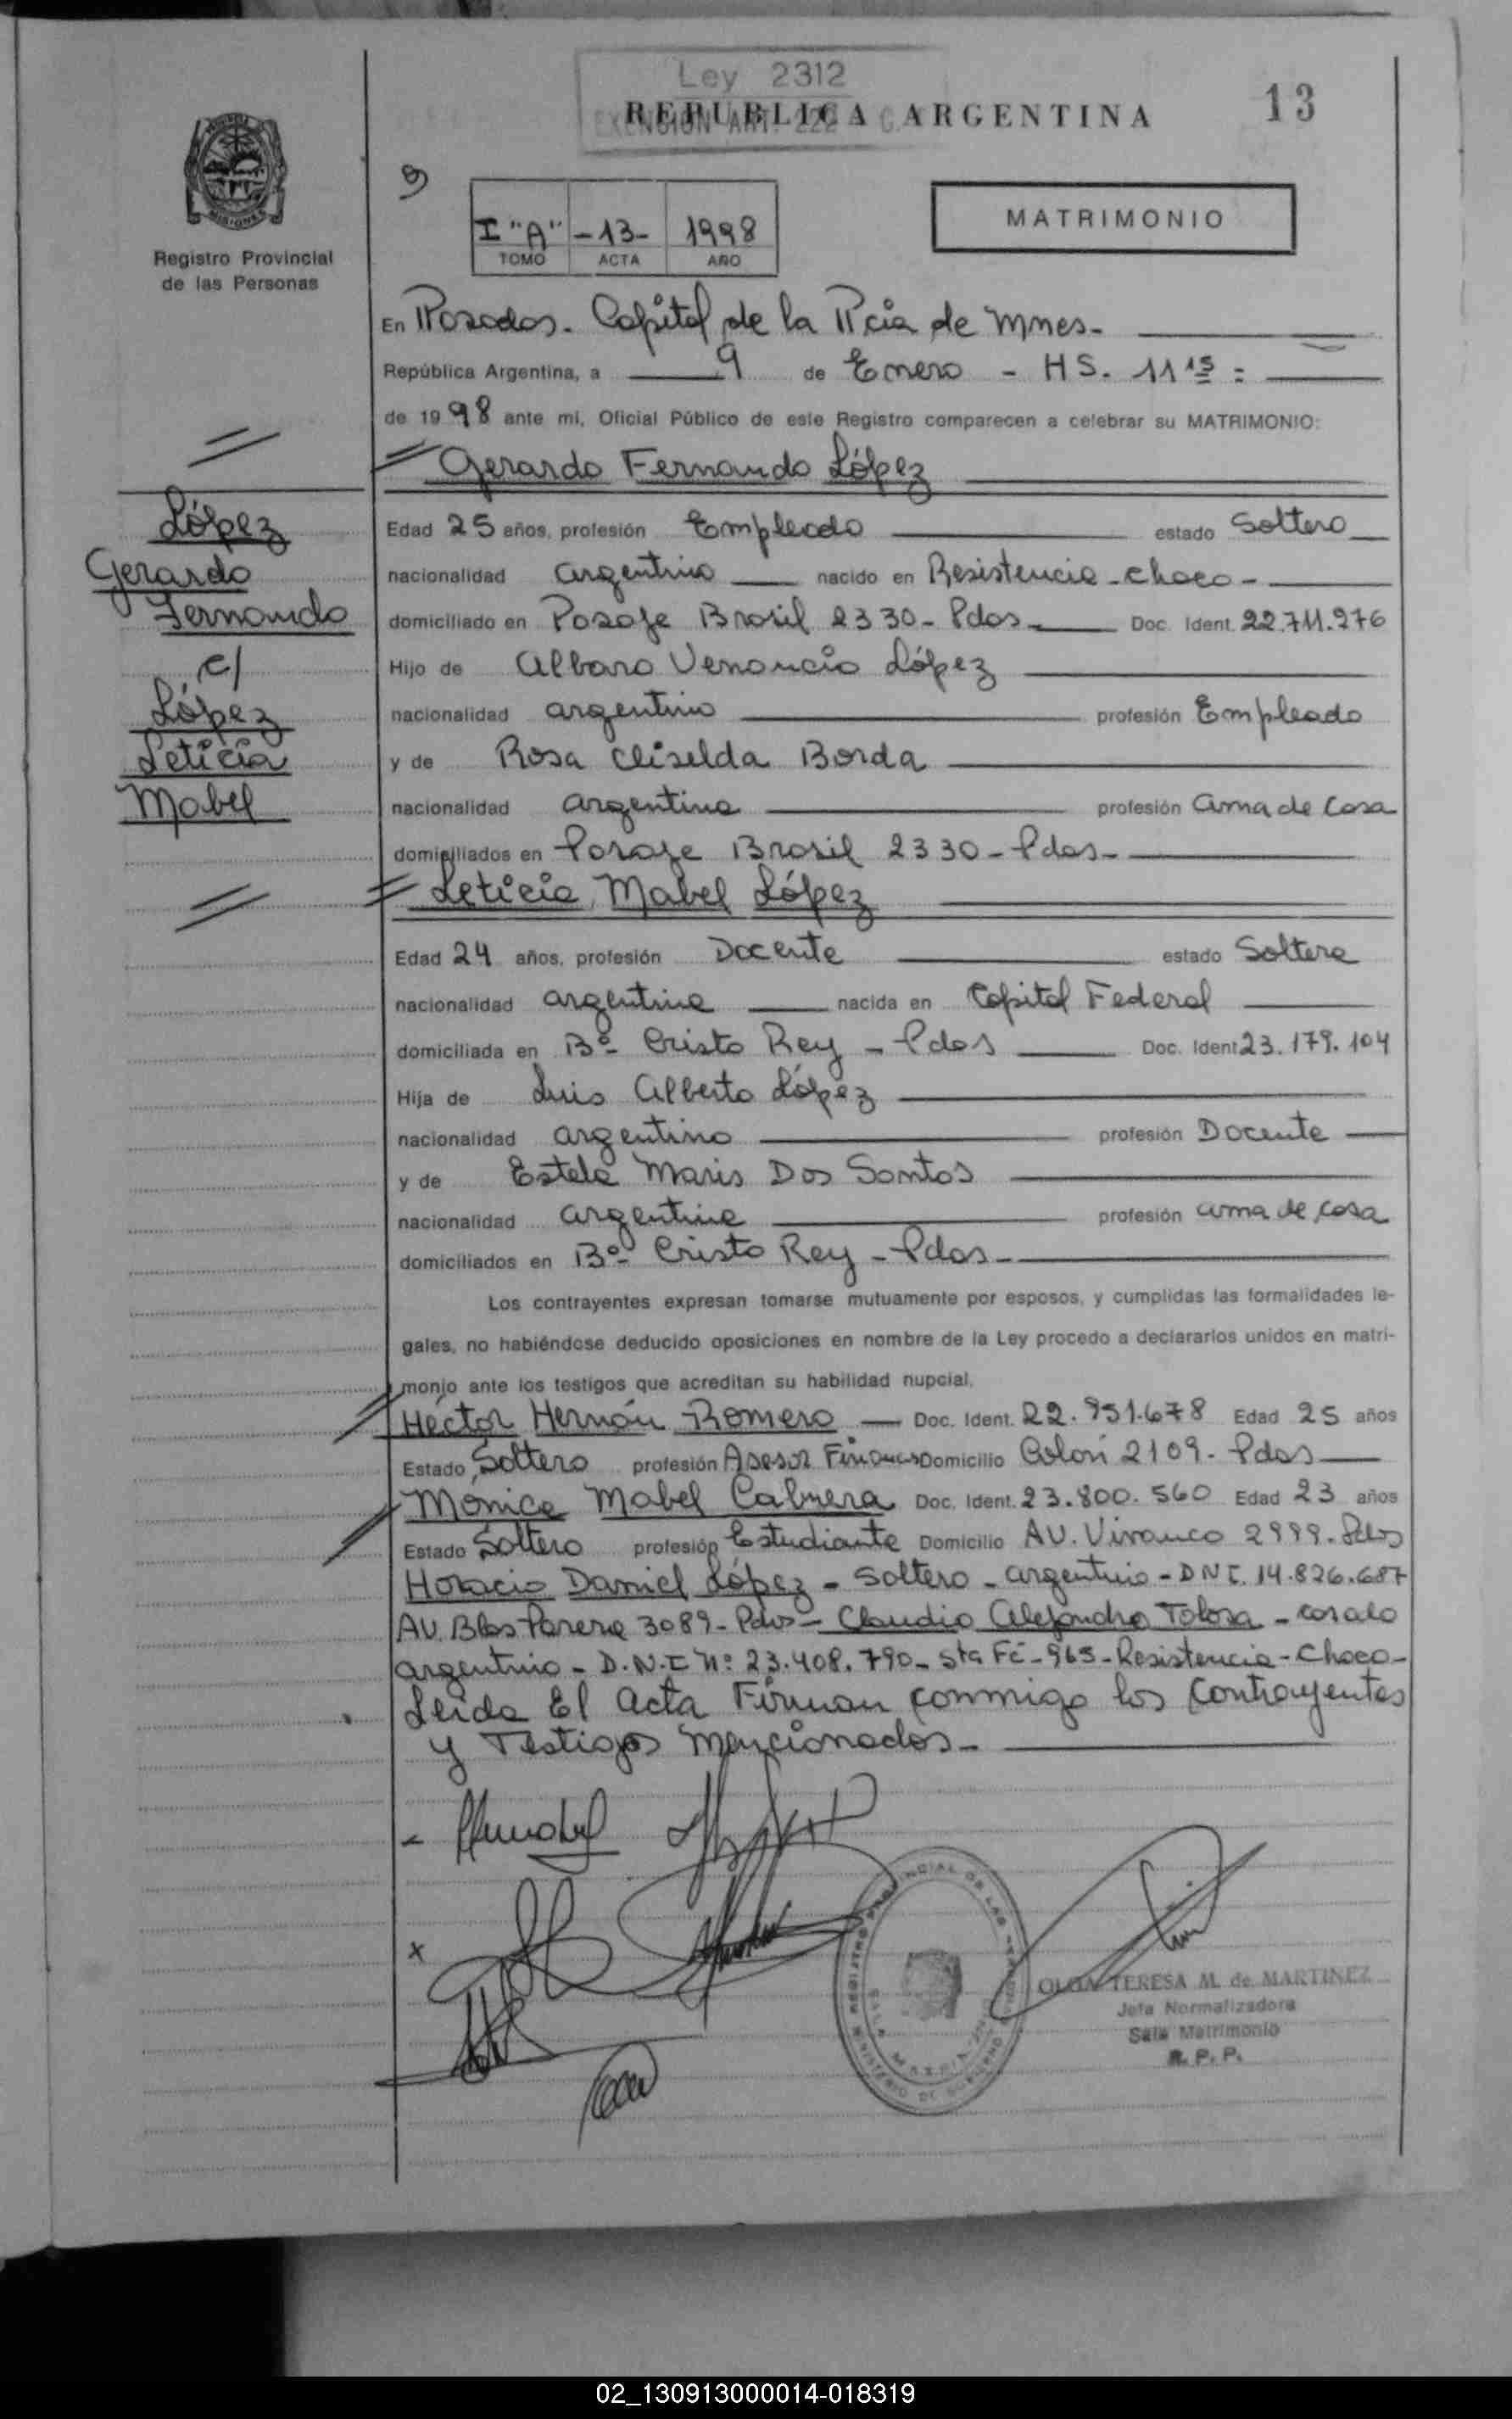 Ley 2312
EXENCION ART. 222 C.
REPUBLICA ARGENTINA
13
MISIONES
Registro Provincial
de las Personas
9
I "A" -13- 1998
TOMO ACTA AÑO
MATRIMONIO
En Posadas. Capital de la Pcia de Mnes.
República Argentina, a 9 de Enero - HS. 11 15 =
de 1998 ante mi, Oficial Público de este Registro comparecen a celebrar su MATRIMONIO:
Gerardo Fernando López
Edad 25 años, profesión Empleado estado Soltero
nacionalidad argentino nacido en Resistencia - Chaco -
domiciliado en Pasaje Brasil 2330 - Pdas - Doc. Ident. 22.711.976
Hijo de Albaro Venancio López
nacionalidad argentino profesión Empleado
y de Rosa Cliselda Borda
nacionalidad argentina profesión ama de casa
domiciliados en Pasaje Brasil 2330 - Pdas -
Leticia Mabel López
Edad 24 años, profesión Docente estado Soltera
nacionalidad argentina nacida en Capital Federal
domiciliada en Bº Cristo Rey - Pdas Doc. Ident 23.179.104
Hija de Luis Alberto López
nacionalidad argentino profesión Docente
y de Estela Maris Dos Santos
nacionalidad argentina profesión ama de casa
domiciliados en Bº Cristo Rey - Pdas -
Los contrayentes expresan tomarse mutuamente por esposos, y cumplidas las formalidades le-
gales, no habiéndose deducido oposiciones en nombre de la Ley procedo a declararlos unidos en matri-
monio ante los testigos que acreditan su habilidad nupcial.
Héctor Hernán Romero Doc. Ident. 22.951.678 Edad 25 años
Estado Soltero profesión Asesor Domicilio Colón 2109 - Pdas
Monica Mabel Cabrera Doc. Ident. 23.800.560 Edad 23 años
Estado Soltero profesión Estudiante Domicilio AV. Vivanco 2999 - Pdas
Horacio Daniel López - Soltero - argentino - DNI. 14.826.687
AV. Blas Parera 3089 - Pdas - Claudio Alejandro Tolosa - casado
argentino - D.N.I Nº: 23.408.790 - Sta Fé - 965 - Resistencia - Chaco -
Leida El acta Firman conmigo los Contrayentes
y Testigos mencionados -
López
Gerardo
Fernando
c/
López
Leticia
Mabel
OLGA TERESA M. de MARTINEZ
Jefa Normalizadora
Sala Matrimonio
R. P. P.
02_130913000014-018319